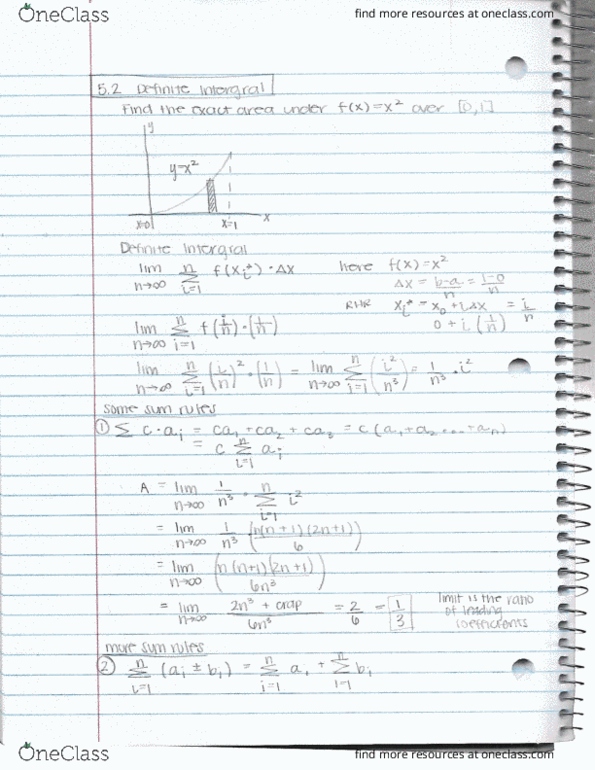 OneClass
find more resources at oneclass.com
5.2 Definite Intergral
Find the exact area under f(x)=x² over [0,1]
y
y=x²
x=0 x=1 x
Definite Intergral
lim n→∞ n Σ i=1 f(xi*)·Δx here f(x)=x²
Δx = b-a/n = 1-0/n
RHR xi* = x0 + iΔx = i/n
0 + i (1/n)
lim n→∞ n Σ i=1 f(i/n)·(1/n)
lim n→∞ n Σ i=1 (i/n)²·(1/n) = lim n→∞ n Σ i=1 (i²/n³) = 1/n³ · i²
some sum rules
① Σ c·ai = ca1 + ca2 + ca3 = c(a1+a2...+an)
= c n Σ i=1 ai
A = lim n→∞ 1/n³ · n Σ i=1 i²
= lim n→∞ 1/n³ (n(n+1)(2n+1)/6)
= lim n→∞ (n(n+1)(2n+1)/6n³)
= lim n→∞ 2n³ + crap/6n³ = 2/6 = 1/3 limit is the ratio
of leading
coefficients
more sum rules
② n Σ i=1 (ai ± bi) = n Σ i=1 ai + n Σ i=1 bi
OneClass
find more resources at oneclass.com